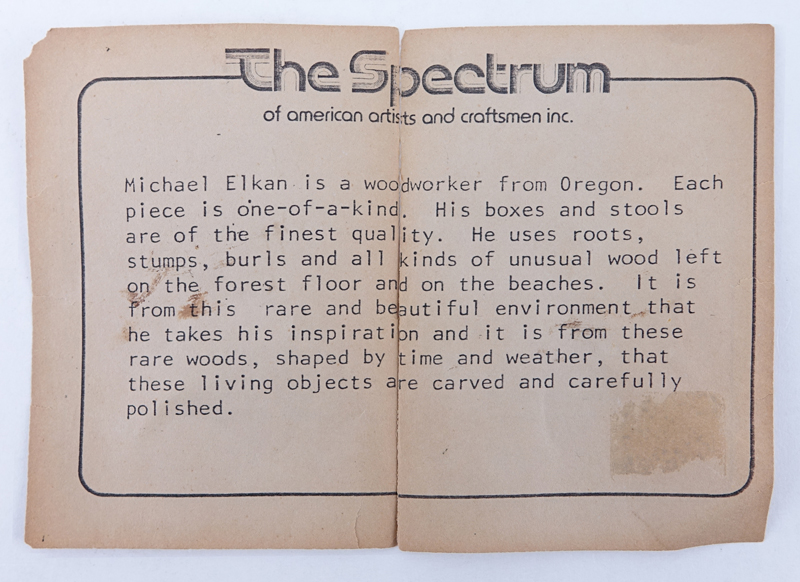 The Spectrum
of american artists and craftsmen inc.
Michael Elkan is a woodworker from Oregon. Each
piece is one-of-a-kind. His boxes and stools
are of the finest quality. He uses roots,
stumps, burls and all kinds of unusual wood left
on the forest floor and on the beaches. It is
from this rare and beautiful environment that
he takes his inspiration and it is from these
rare woods, shaped by time and weather, that
these living objects are carved and carefully
polished.